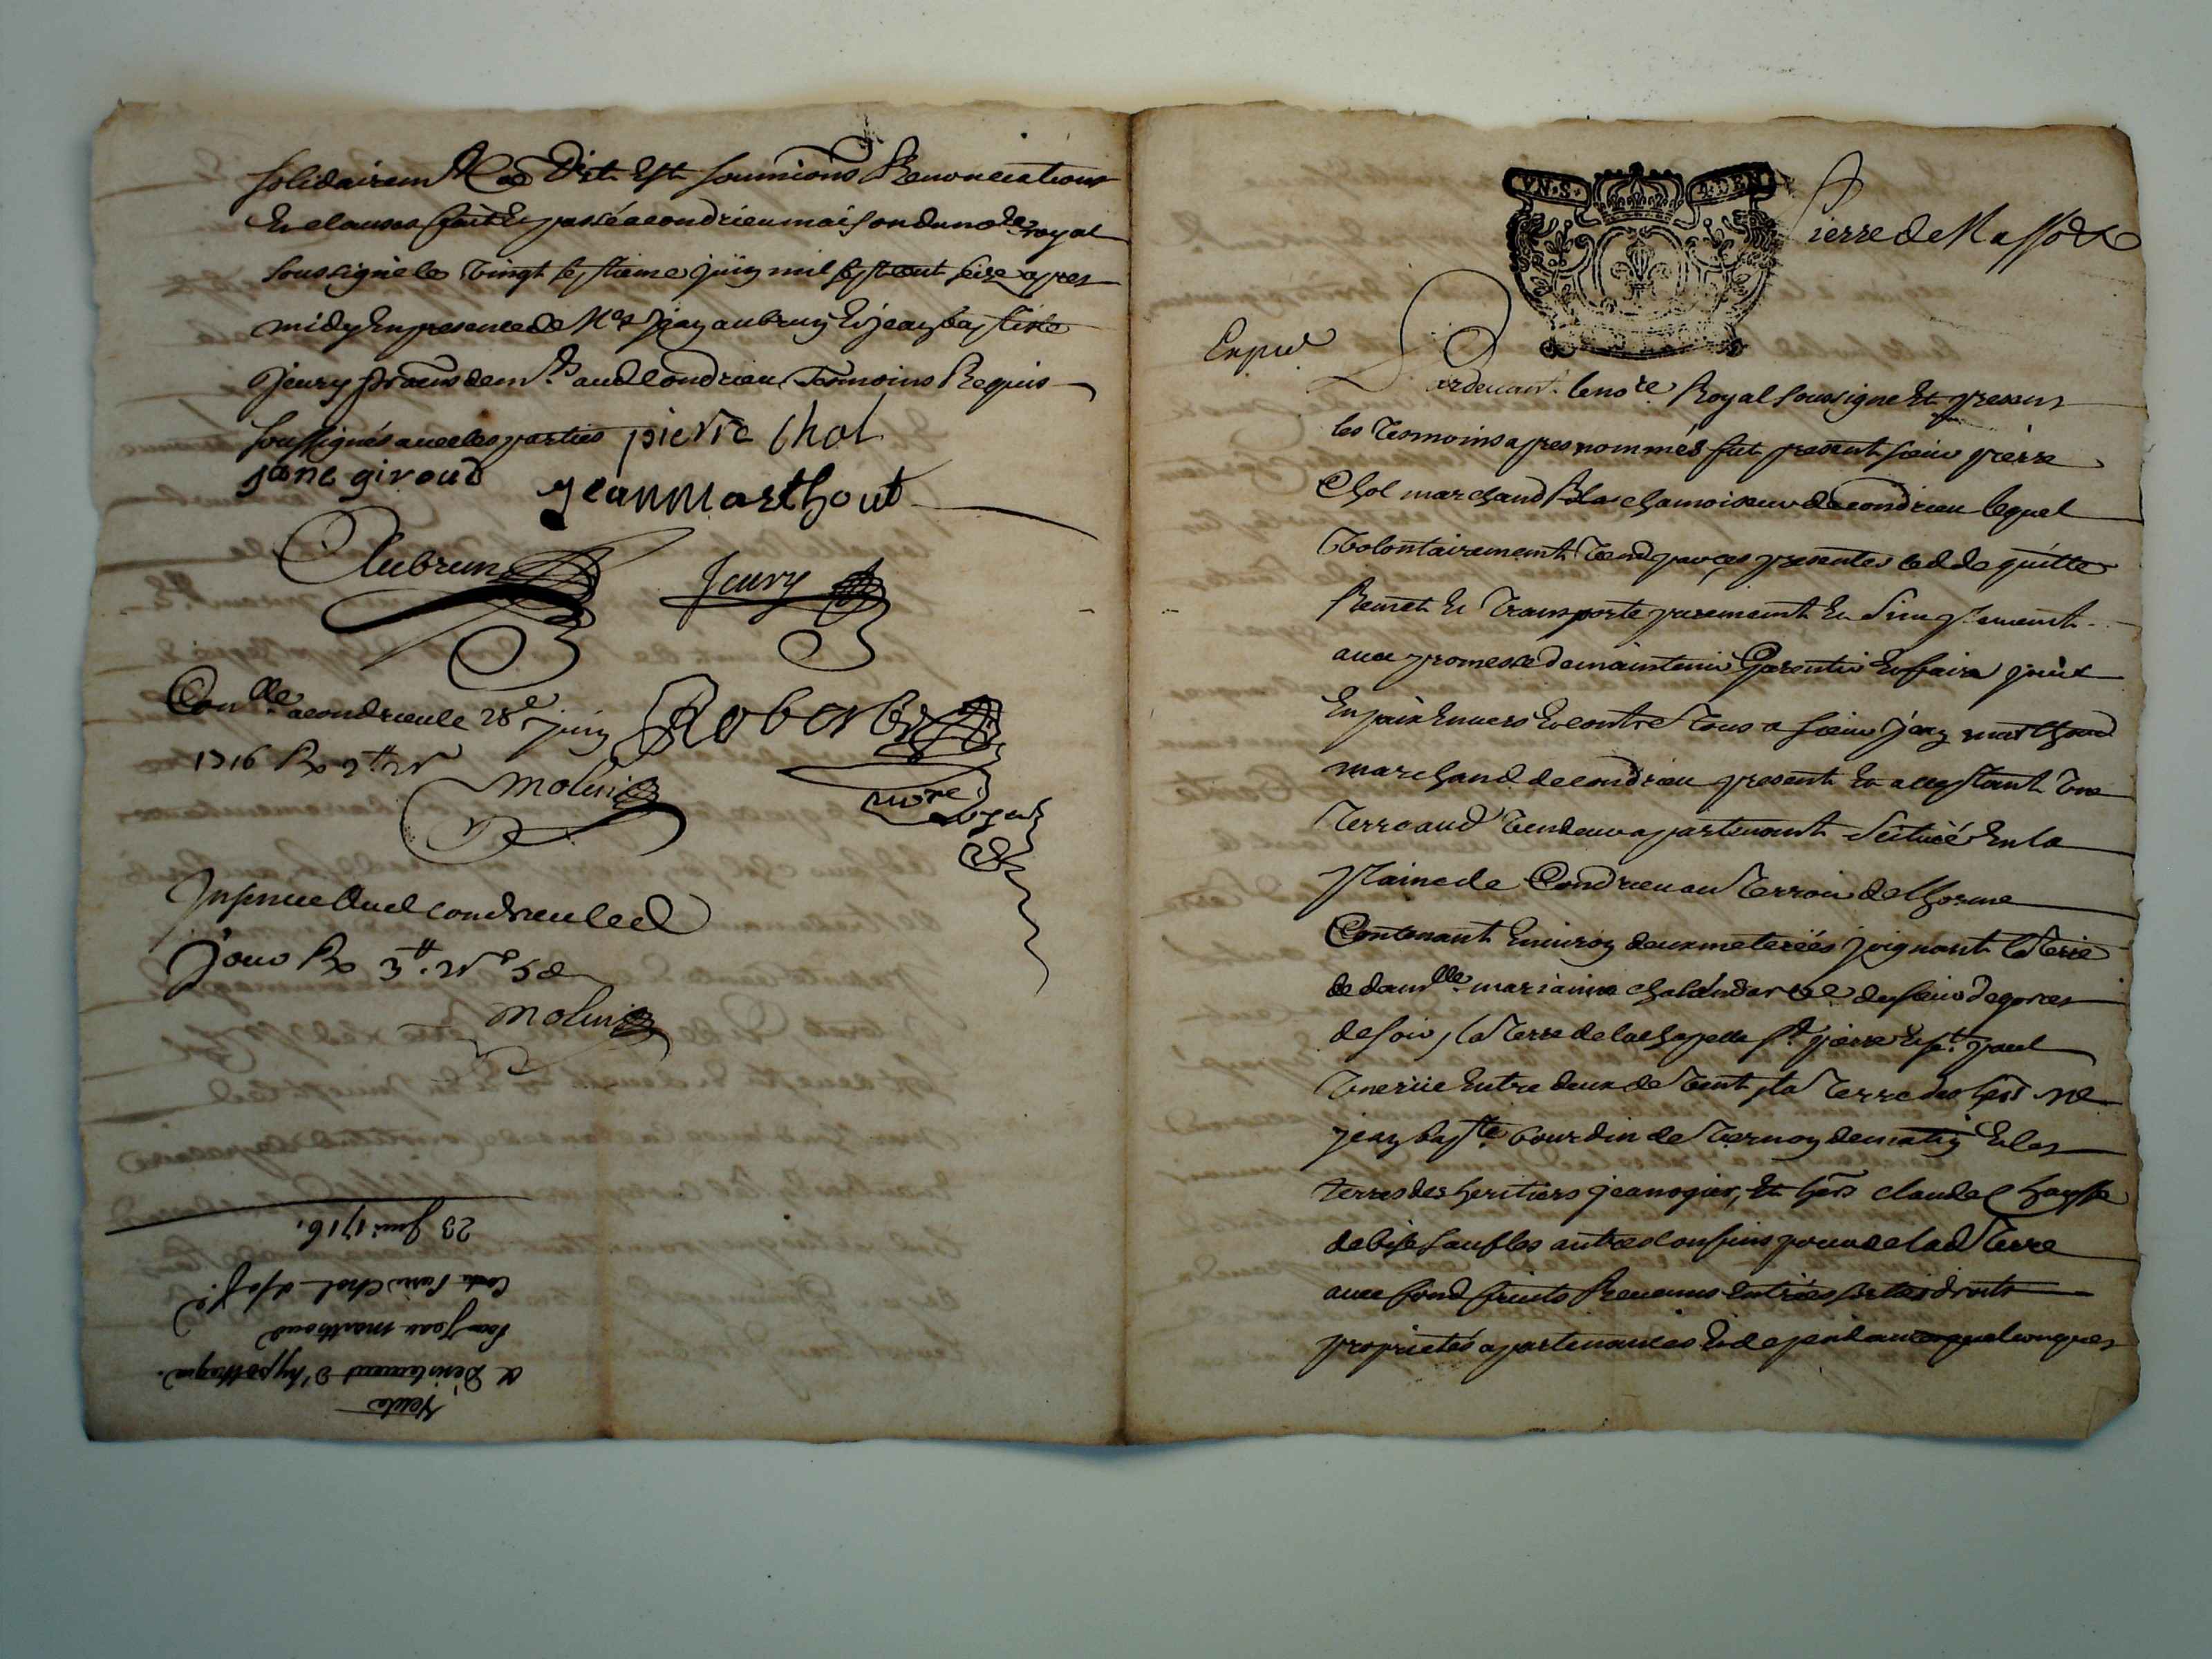 solidairemt co dit est soumissions Renonciations
Et clauses fait et passé a condrieu maison du nore royal
soussigné le vingt septieme juin mil sept cent seize apres
midy En presence de Mes jean aubrun Et jean baptiste
jeury dud condrieu Temoins Requis
soussignés avec les parties pierre Chol
jane giroud jean marthout
Aubrun jeury
Conlle a condrieu le 28e juin
1716 Rx
Robert
nore royal
molin
Insinue Aud condrieu led
jour Rx 3tt
molin
Vente
& Desistement d'hypotheque.
Pour Jean marthoud
Contre Pierre Chol
23 Juin 1716.
VN.S. 4.DEN
Pierre de Masso &c
Expie
Pardevant le nore Royal soussigne Et presens
les Tesmoins apres nommés fut present sieur pierre
Chol marchand chamoiseur de condrieu lequel
Volontairement Vend par ces presentes cedde quitte
Remet Et Transporte purement Et simplement
avec promesse de maintenir Garentir Et faire jouir
En paix Envers Et contre Tous a sieur jean marthoud
marchand de condrieu present Et acceptant Une
Terre aud Vendeur apartenant Scituée En la
plaine de Condrieu au Terroir de lhorme
Contenant Environ deux meterées joignant la Terre
de damlle marianne du sieur
de soir, la Terre de la chapelle st pierre Et st paul
Une rüe Entre deux de Vent, la Terre des hers Me
jean bapte bourdin de Vernon de matin Et les
terres des heritiers jean ogier, Et hers claude
de bise sauf les autres confins pour de lad Terre
avec fond fruits Revenus Entrées sorties droits
proprietés apartenances Et dependances quelconques